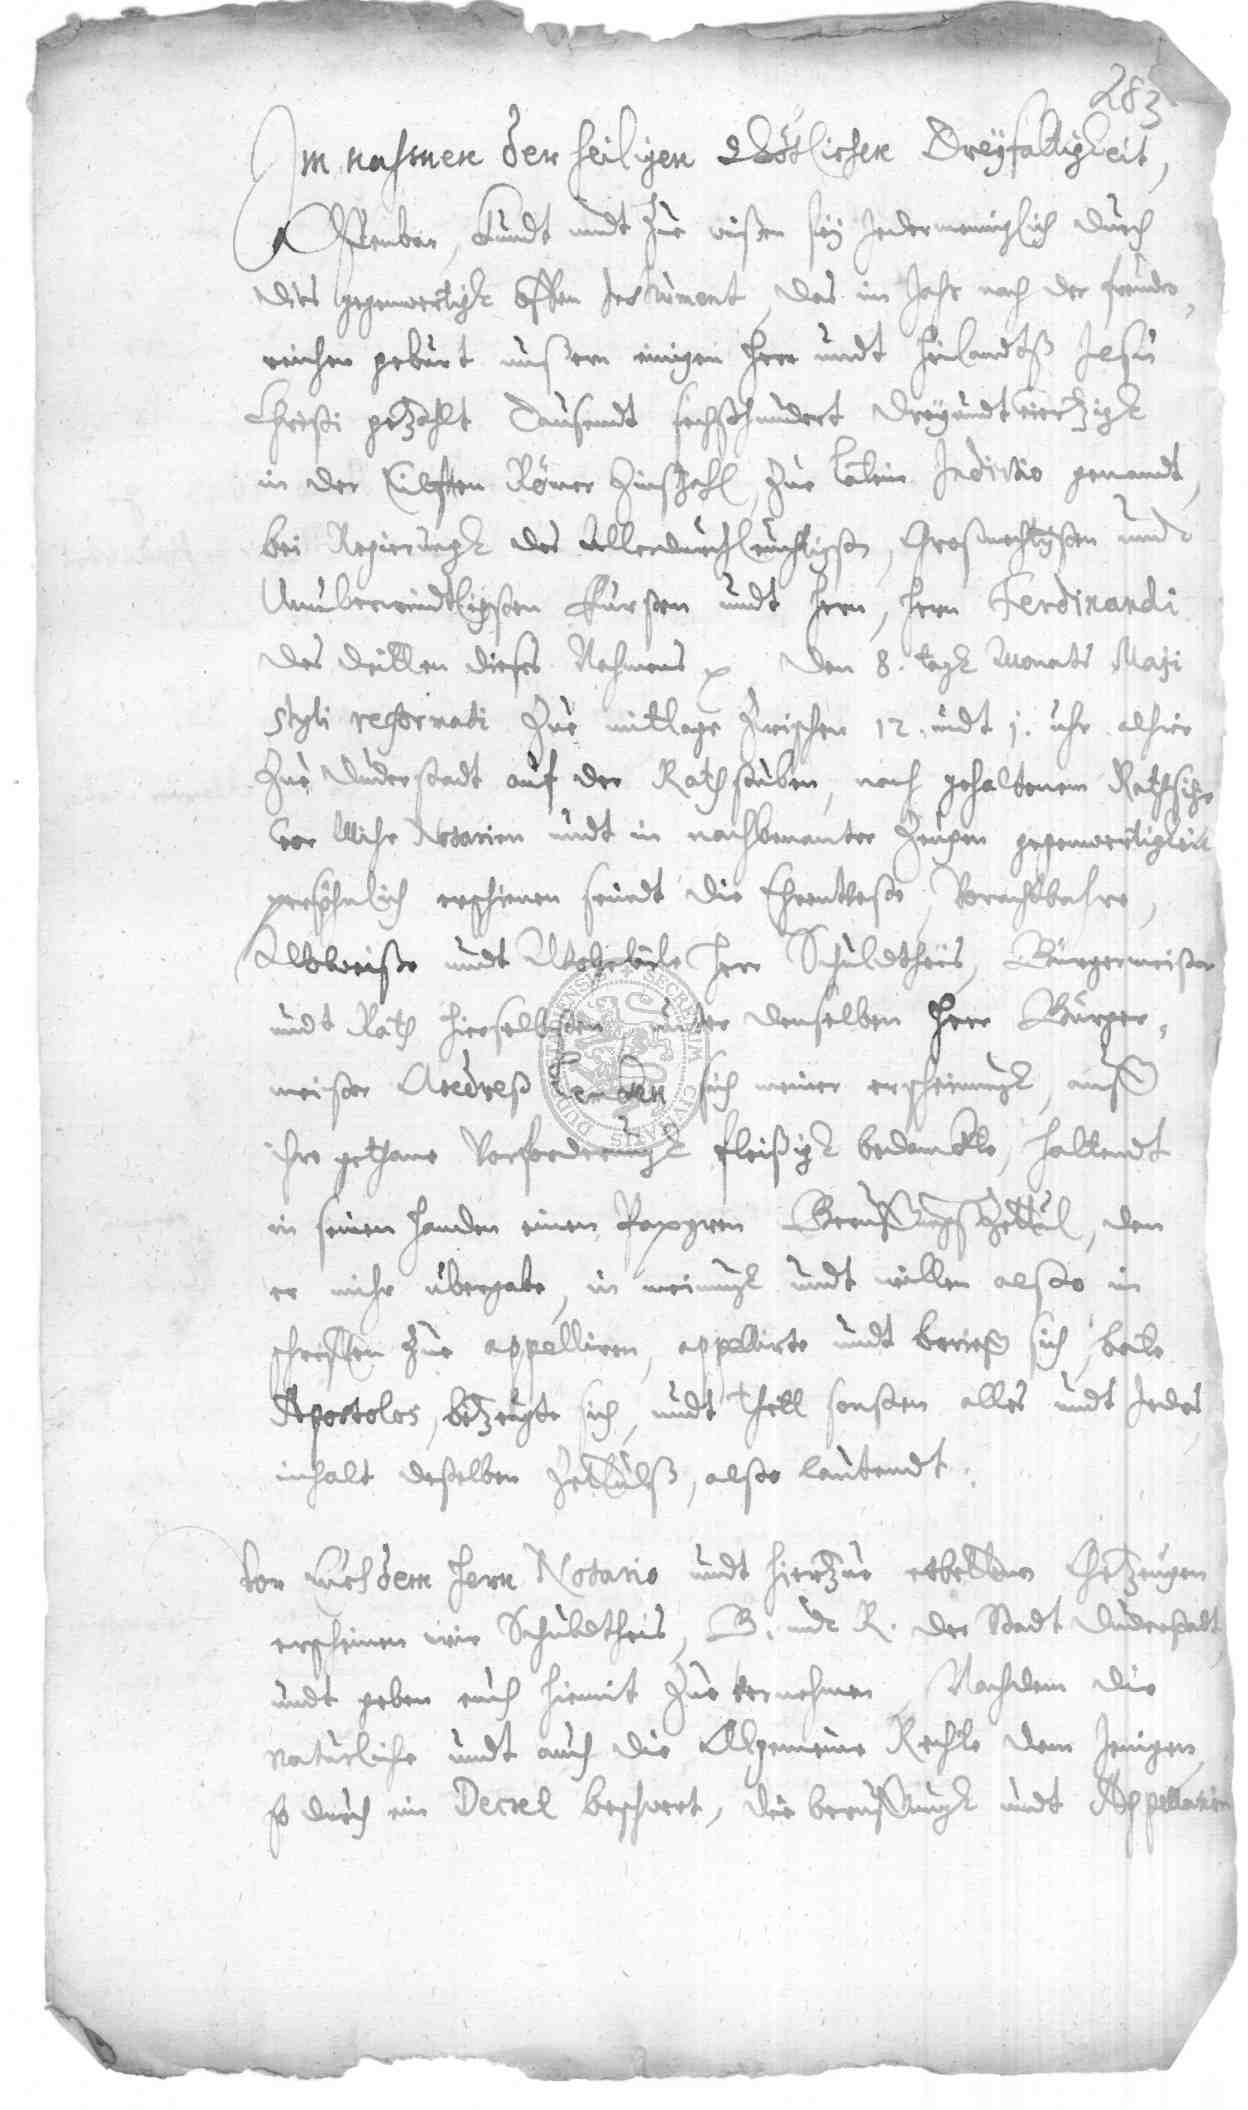 283
Im nahmen der heiligen Götlichen Dreyfaltigkeit,
Offenbar, Kundt undt Zue wißen sey Jedermenniglich durch
dies gegenwertigk offen Instrument, das im Jahr nach der freuden-
reichen geburt unßern einigen Herr undt Heilandtß Jesu
Christi gezahlt Tausendt sechßhundert dreyundtvierzigk
in der Eilfften Römer Zinßzahl, Zue latein Indictio genandt,
bei Regierungk des Allerdurchleuchtigsten, Großmechtigsten undt
Unuberwindtligsten Fursten undt Herrn, Herrn Ferdinandi
des dritten dieses Nahmens den 8. tagk Monats Maji
styli reformati Zue mittage Zwischen 12. undt 1. uhr alhier
Zue Duderstadt auf der Rathstuben, nach gehaltenem
vor Mihr Notarien undt in nachbenanter Zeugen gegenwertigkeit
persöhnlich erschienen seindt die Ehrentveste, Vorachtbahre,
undt Wolgelarte Herr Schuldtheis, Burgermeister
undt Rath hierselbsten, unter denselben Herr Burger-
meister Andreß sich meiner erscheinungk, auff
ihre gethane Vorforderungk fleißigk bedanckte, haltendt
in seinen handen einen Papyren Beruffungß Zettul, den
er mihr ubergabe, in meinungk undt willen alßo in
schrifften Zue appelliren, appellirte undt berieff sich, bate
Apostolos, bezeugte sich, undt thett sonsten alles undt Jedes,
inhalt deßelben Zettulß, alßo lautendt.
Vor Euch dem Herrn Notario undt hierzue erbettenen Gezeugen
erscheinen wir Schuldtheis, B. undt R. der Stadt Duderstadt,
undt geben euch hiemit Zue vernehmen, Nachdem die
naturliche undt auch die Algemeine Rechte dem Jenigen,
so durch ein Decret beschwert, die beruffungk undt Appellation